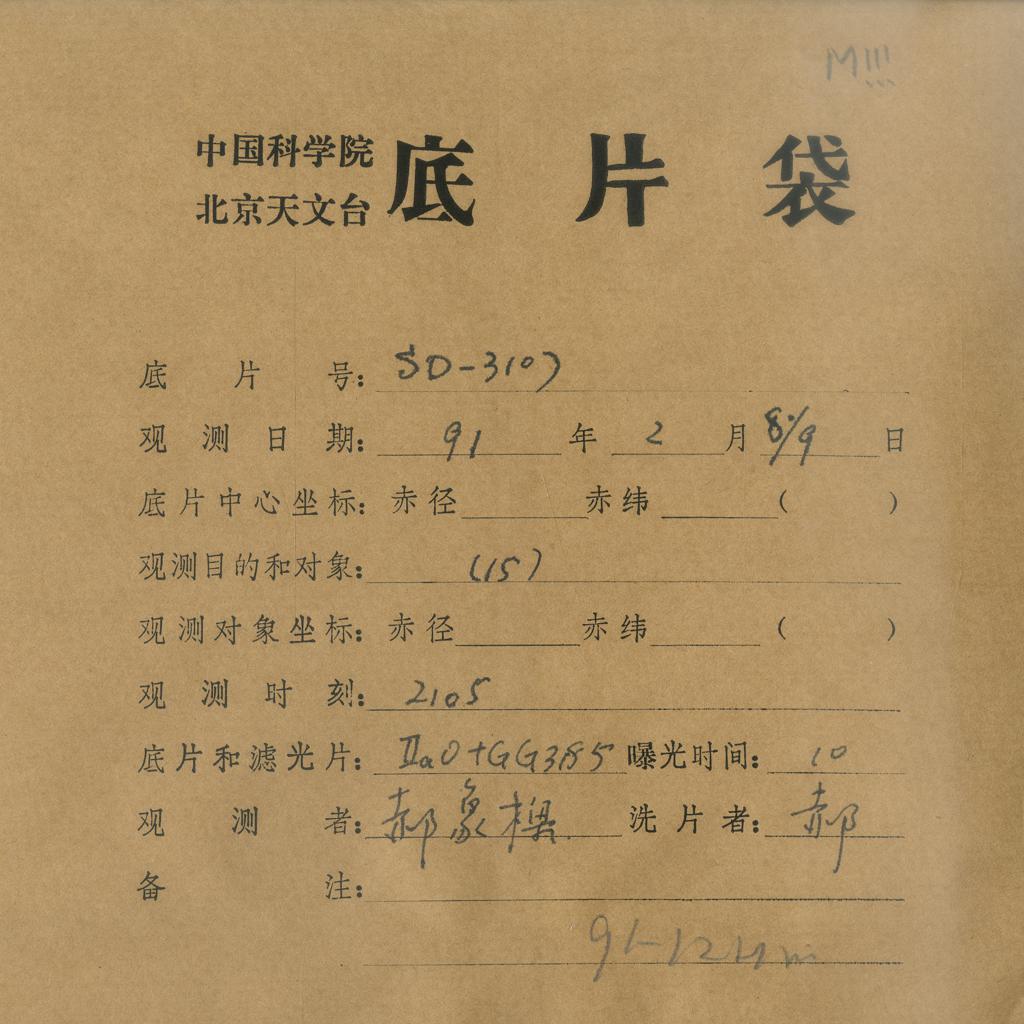 M!!!
中国科学院
北京天文台 底片袋
底片号: SD-3107
观测日期: 91 年 2 月 8/9 日
底片中心坐标: 赤径 赤纬 ( )
观测目的和对象: (15)
观测对象坐标: 赤径 赤纬 ( )
观测时刻: 2105
底片和滤光片: IIaO+GG385 曝光时间: 10
观测者: 郝象樑 洗片者: 郝
备注: